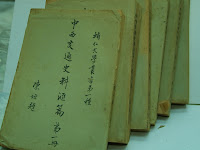 輔仁大學叢書第一種
中西交通史料匯篇第一冊
陳垣題